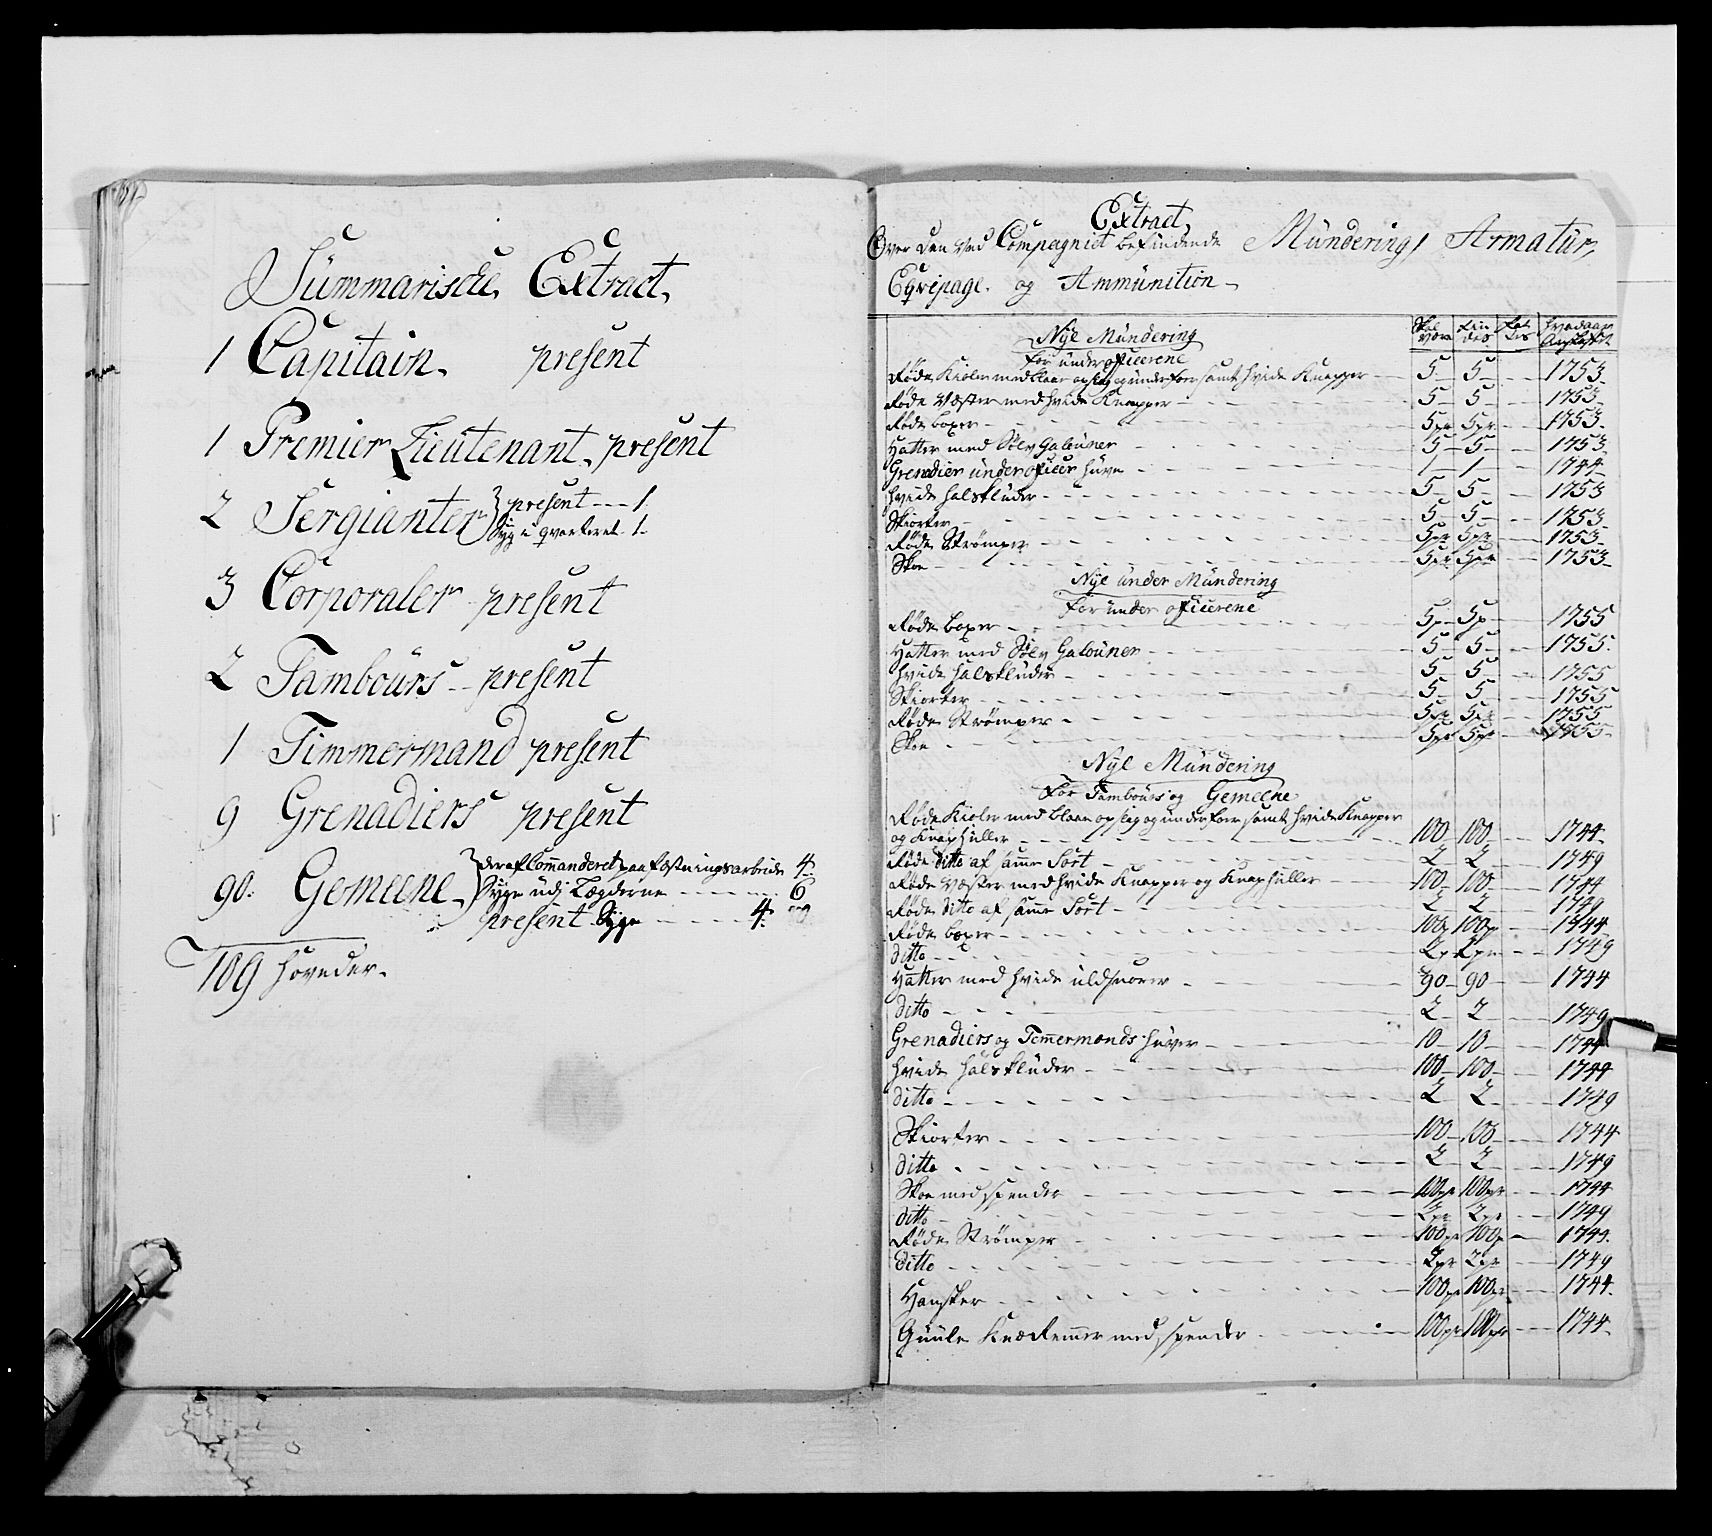 Summarische Extract,
1 Capitain. present
1 Premier Lieutenant. present
2 Sergianter present --- 1.
Syg i qvarteret. 1.
3 Corporaler present
2 Tambours -- present
1 Timmermand present
9 Grenadiers present
90. Gemeene deraf Commanderet paa fæstningsarbeide 4.
Syge udj Lægderne 6
present Syge 4.
109 hoveder.
Extract
Over den ved Compagniet befindende Mündering, Armatür,
Eqvipage. og Ammünition
Skal være
Hvad aar
Nye Mündering
for underofficerene
Røde Kioler med blaae opslag og underfoer samt hvide Knapper 5 5 1753
Røde Væster med hvide Knapper 5 5 1753
Røde boxer 5pr 5pr 1753
Hatter med Sølv Galouner 5 5 1753
Grenadier underofficer huve 1 1 1744
hvide halsklüder 5 5 1753
Skiorter 5 5 1753
Røde Strømper 5pr 5pr 1753
Skoe 5pr 5pr 1753
Nye under Mündering
for under officerene
Røde boxer 5p 5p 1755
Hatter med Sølv Galouner 5 5 1755
hvide halsklüder 5 5 1755
Skiorter 5 5 1755
Røde Strømper 5pr 5pr 1755
Skoe 5pr 5pr 1755
Nye Mündering
For Tambours og Gemeene
Røde Kioler med blaae opslag og underfoer samt hvide Knapper
og Knaphuller 100 100 1744
Røde ditto af samme Sort 2 2 1749
Røde Væster med hvide Knapper og Knaphuller 100 100 1744
Røde ditto af samme Sort 2 2 1749
Røde boxer 100p 100p 1744
ditto 2p 2pr 1749
Hatter med hvide uldsnorer 90 90 1744
ditto 2 2 1749
Grenadiers og Temmermands huver 10 10 1744
hvide halsklüder 100 100 1744
ditto 2 2 1749
Skiorter 100 100 1744
ditto 2 2 1749
Skoe med spender 100pr 100pr 1744
ditto 2pr 2pr 1749
Røde Strømper 100pr 100p 1744
ditto 2pr 2pr 1749
Hansker 100pr 100pr 1744
Guule Knæremmer med spender 100pr 100pr 1744